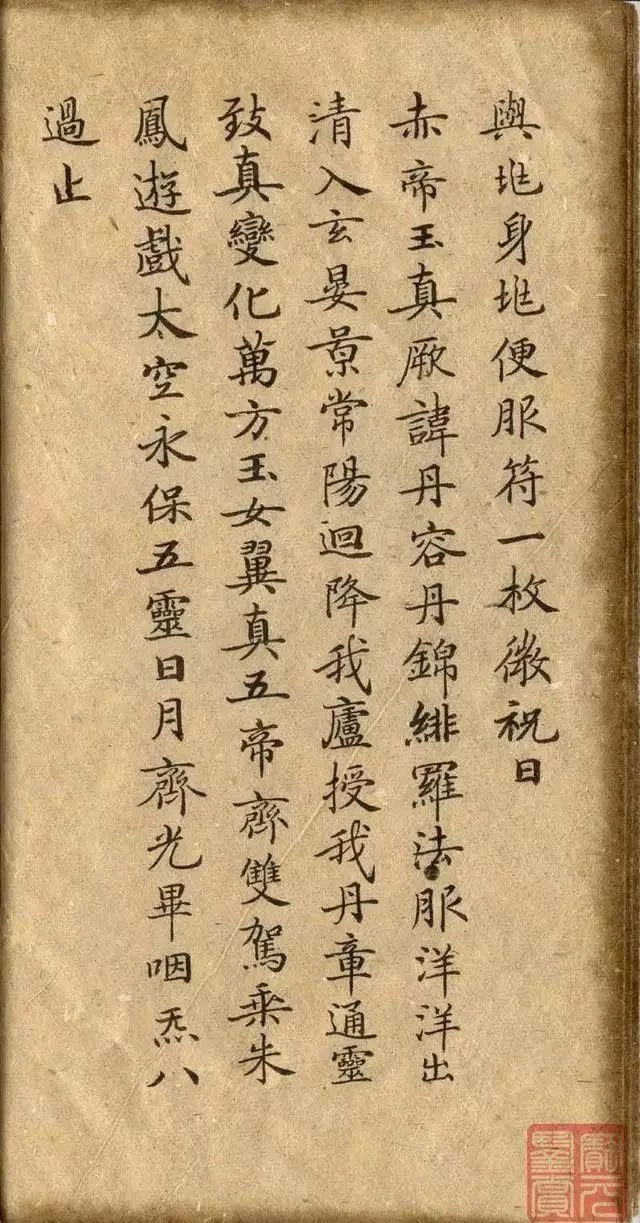 與兆身兆便服符一枚微祝曰
赤帝玉真厥諱丹容丹錦緋羅法服洋洋出
清入玄晏景常陽迴降我廬授我丹章通靈
致真變化萬方玉女翼真五帝齊雙駕乗朱
鳳遊戲太空永保五靈日月齊光畢咽炁八
過止